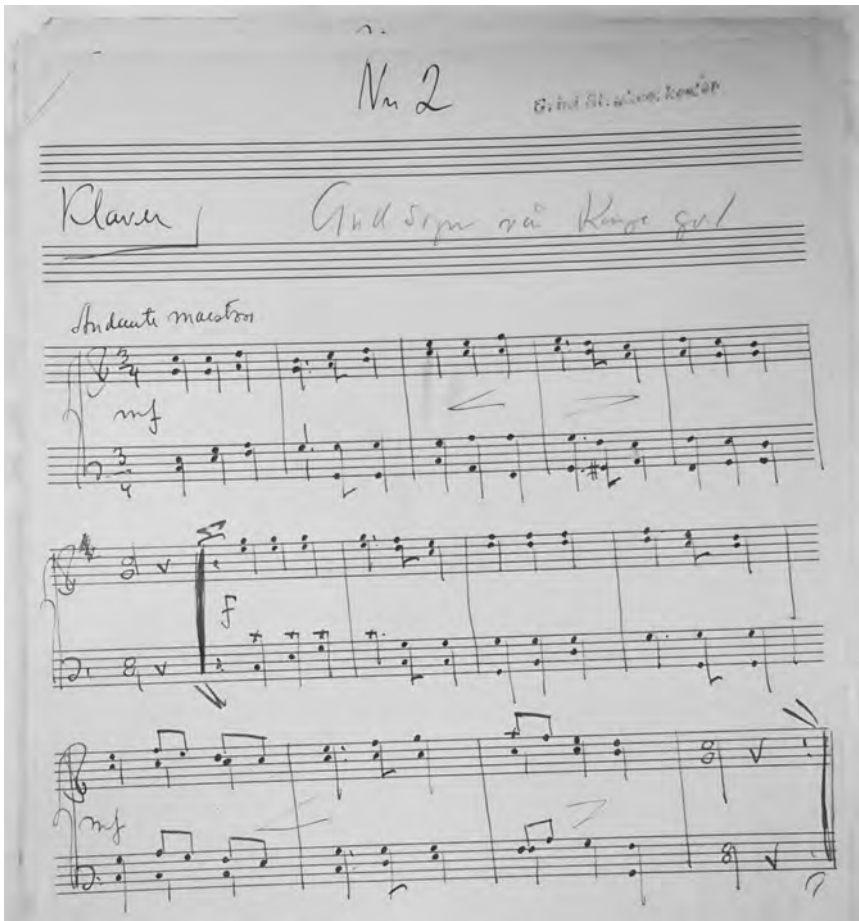 Nr 2
Klaver Gud sign vår Konge god
Andante maestoso
3/4
mf
3/4
f
mf